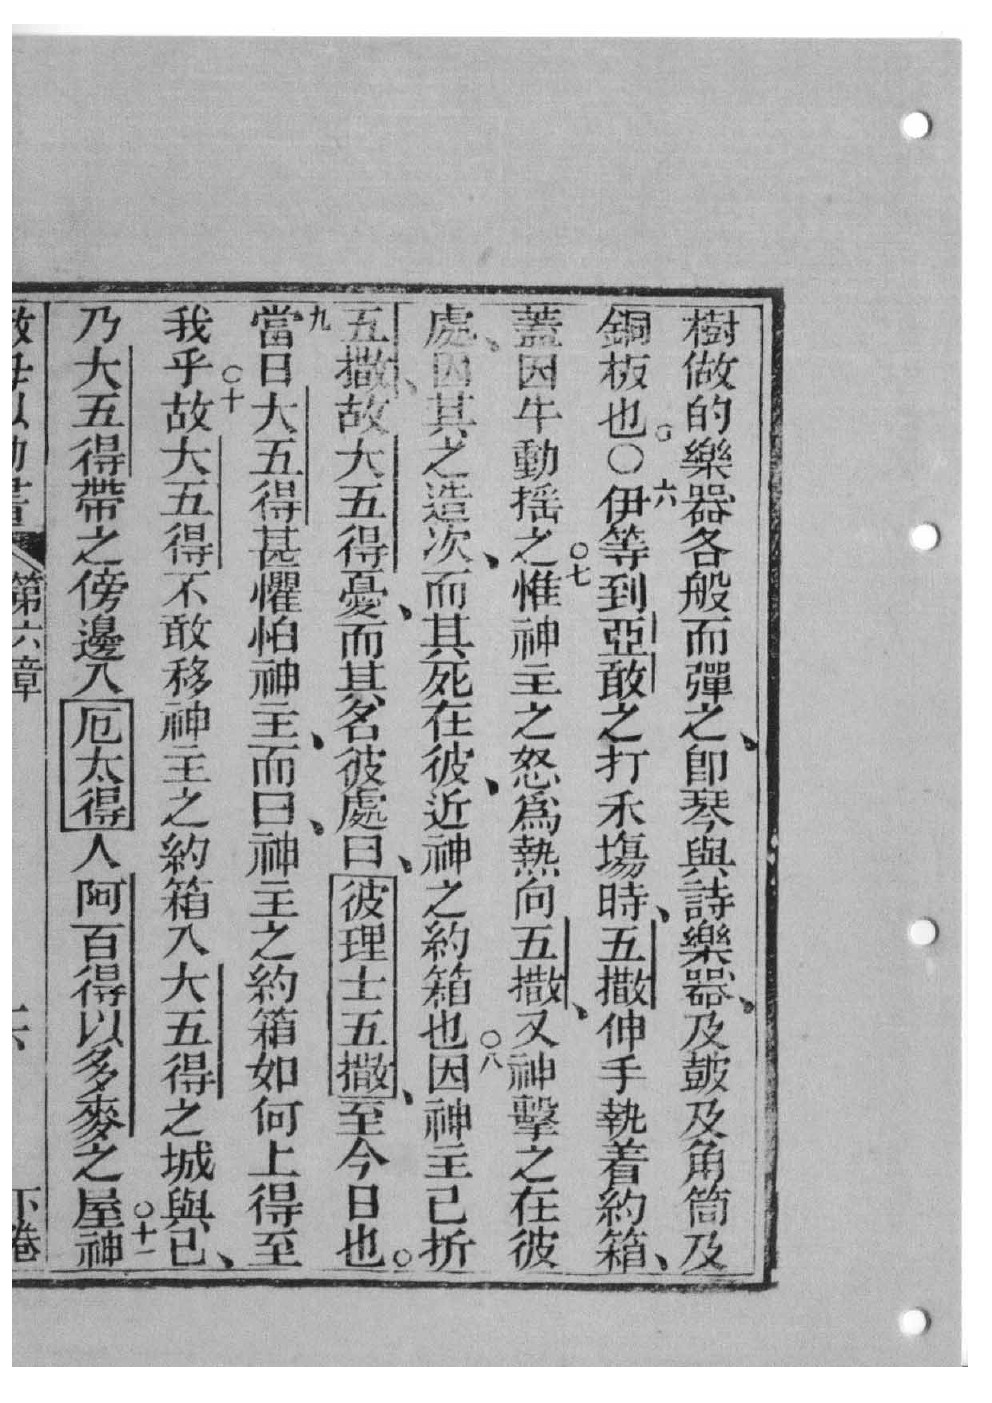 樹做的樂器各般而彈之、卽琴與詩樂器、及皷及角筒及
銅板也。○六伊等到亞敢之打禾塲時、五撒伸手執着約箱、
蓋因牛動揺之○七惟神主之怒爲熱向五撒、又神擊之在彼
處、因其之造次、而其死在彼、近神之約箱也○八因神主已折
五撒、故大五得憂、而其名彼處曰、彼理士五撒、至今日也。
九當日大五得甚懼怕神主、而曰、神主之約箱如何上得至
我乎○十故大五得不敢移神主之約箱入大五得之城與已、
乃大五得帶之傍邊入厄太得人阿百得以多麥之屋○十一神
第六章
下卷